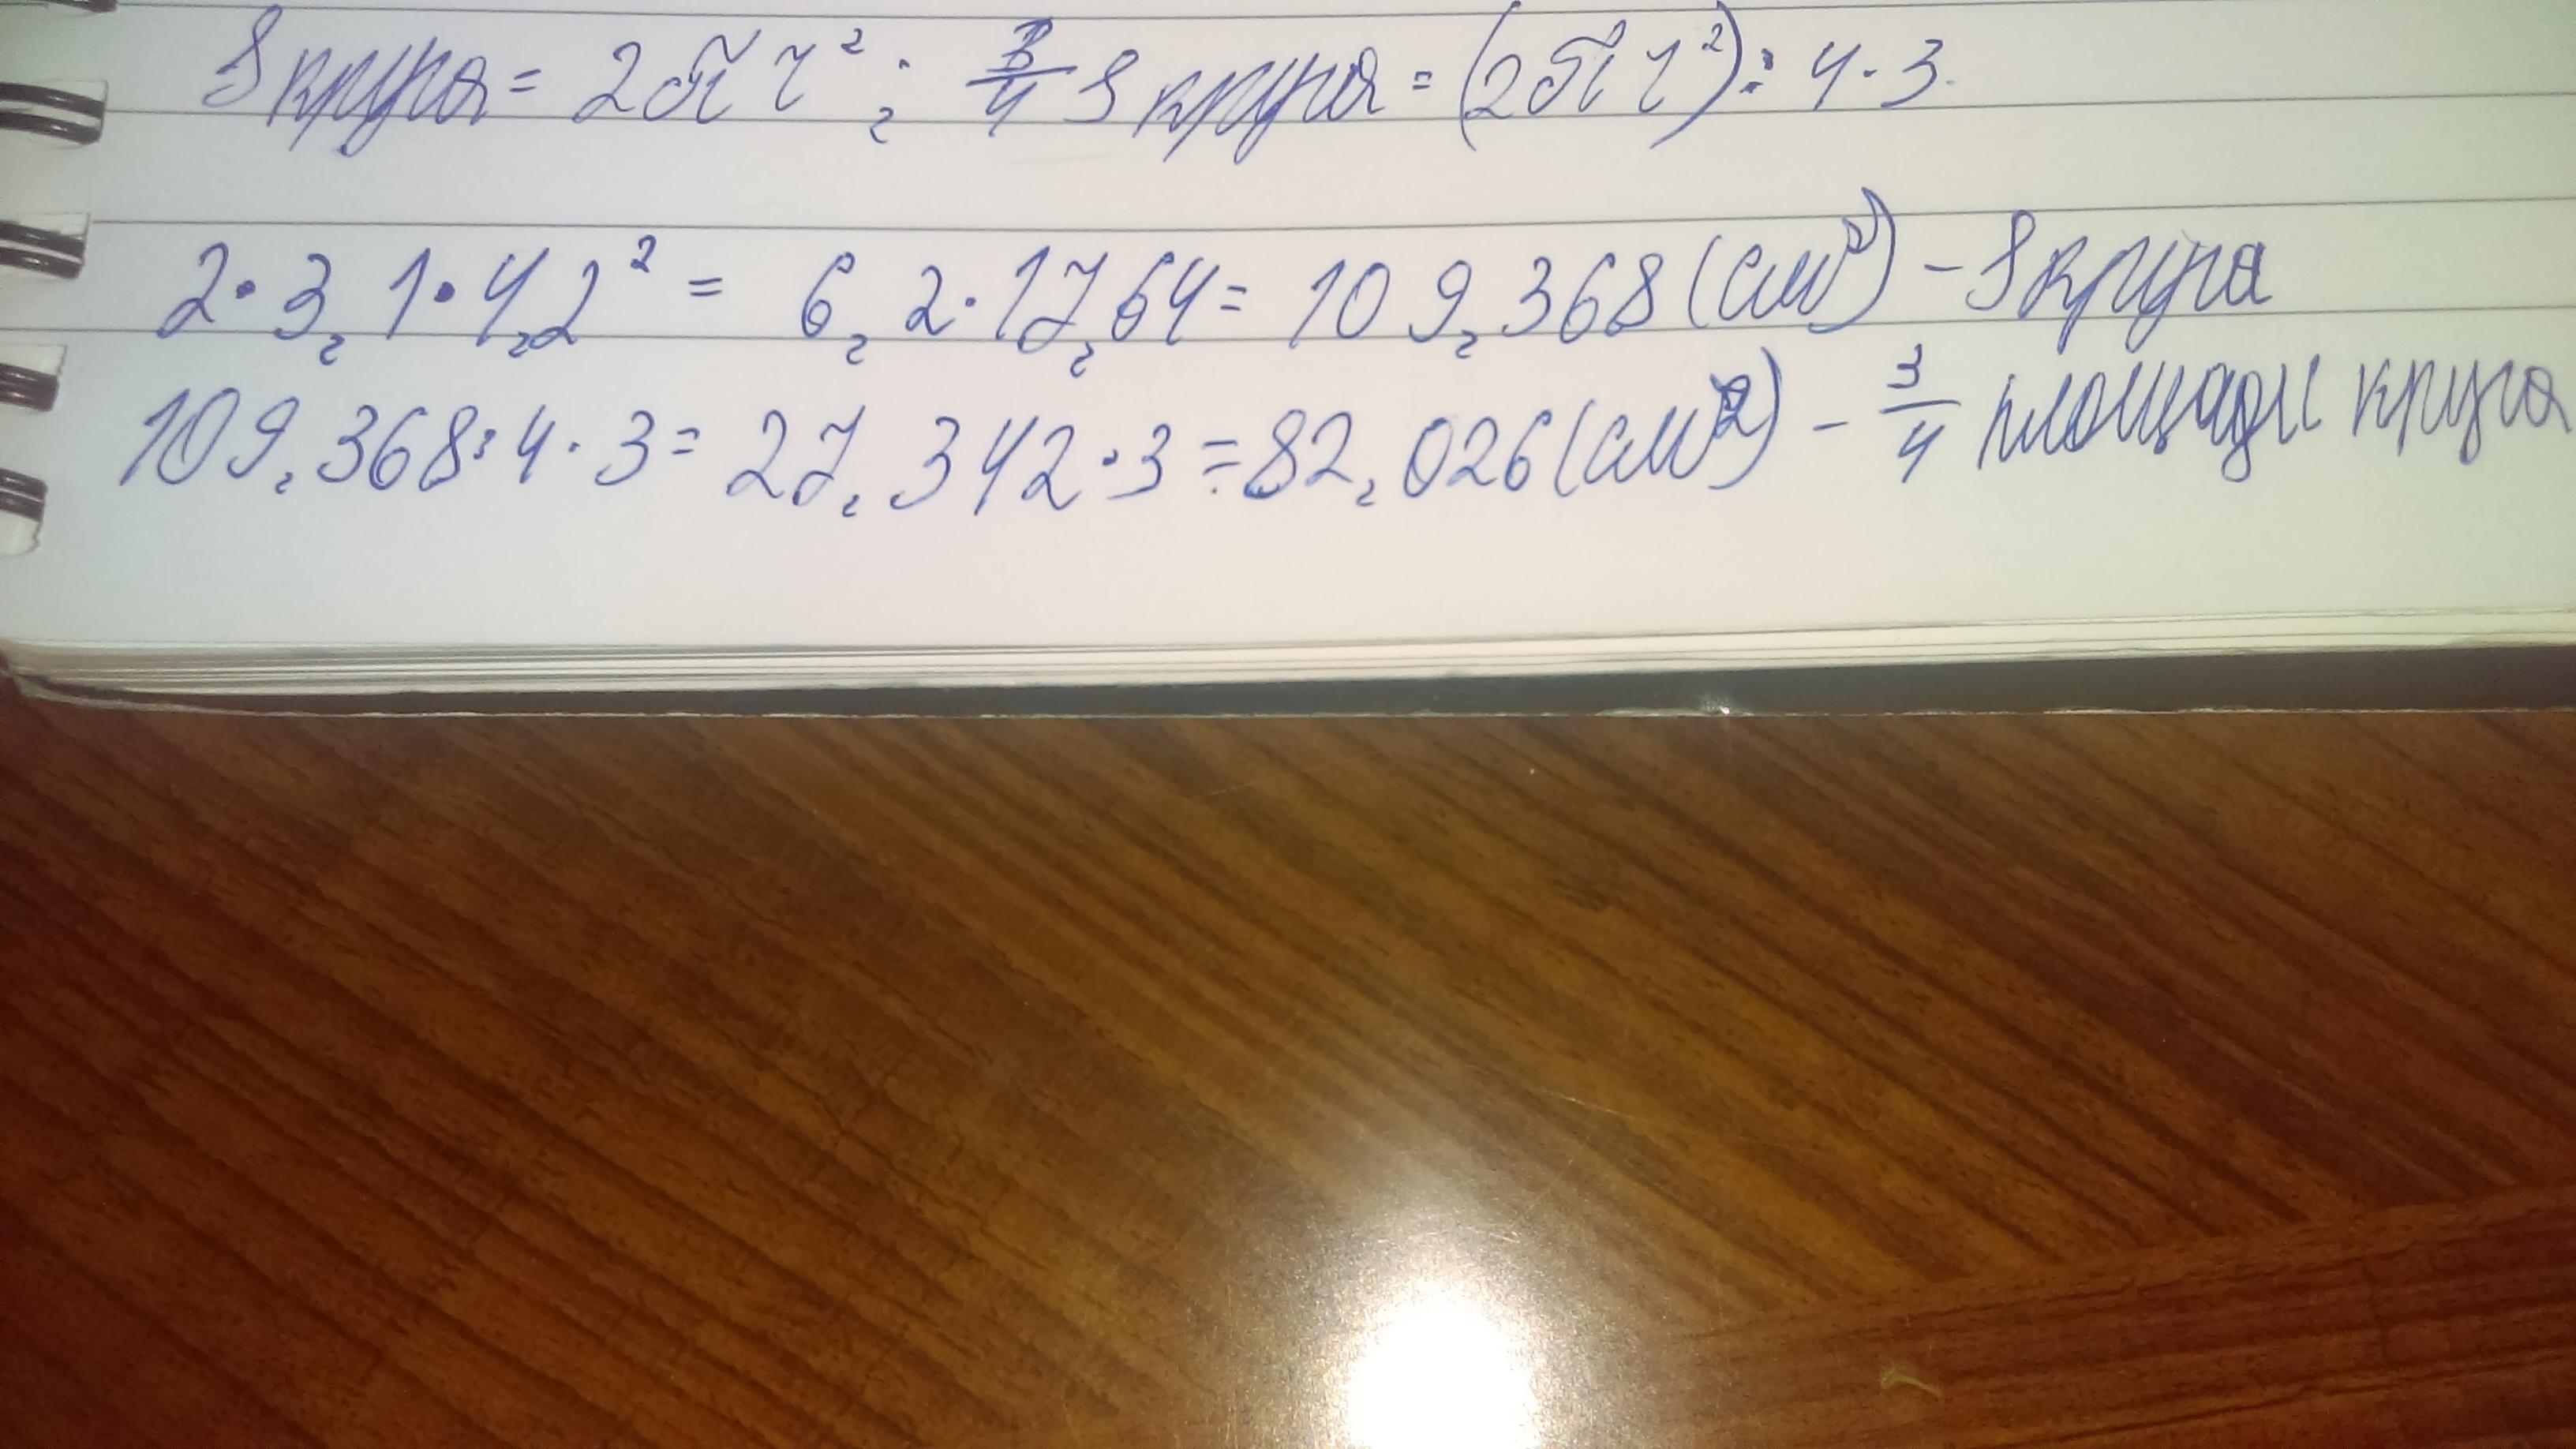 S круга = 2πr²; 3/4 S круга = (2πr²) : 4 · 3.
2 · 3,1 · 4,2² = 6,2 · 17,64 = 109,368 (см²) – S круга
109,368 : 4 · 3 = 27,342 · 3 = 82,026 (см²) – 3/4 площади круга